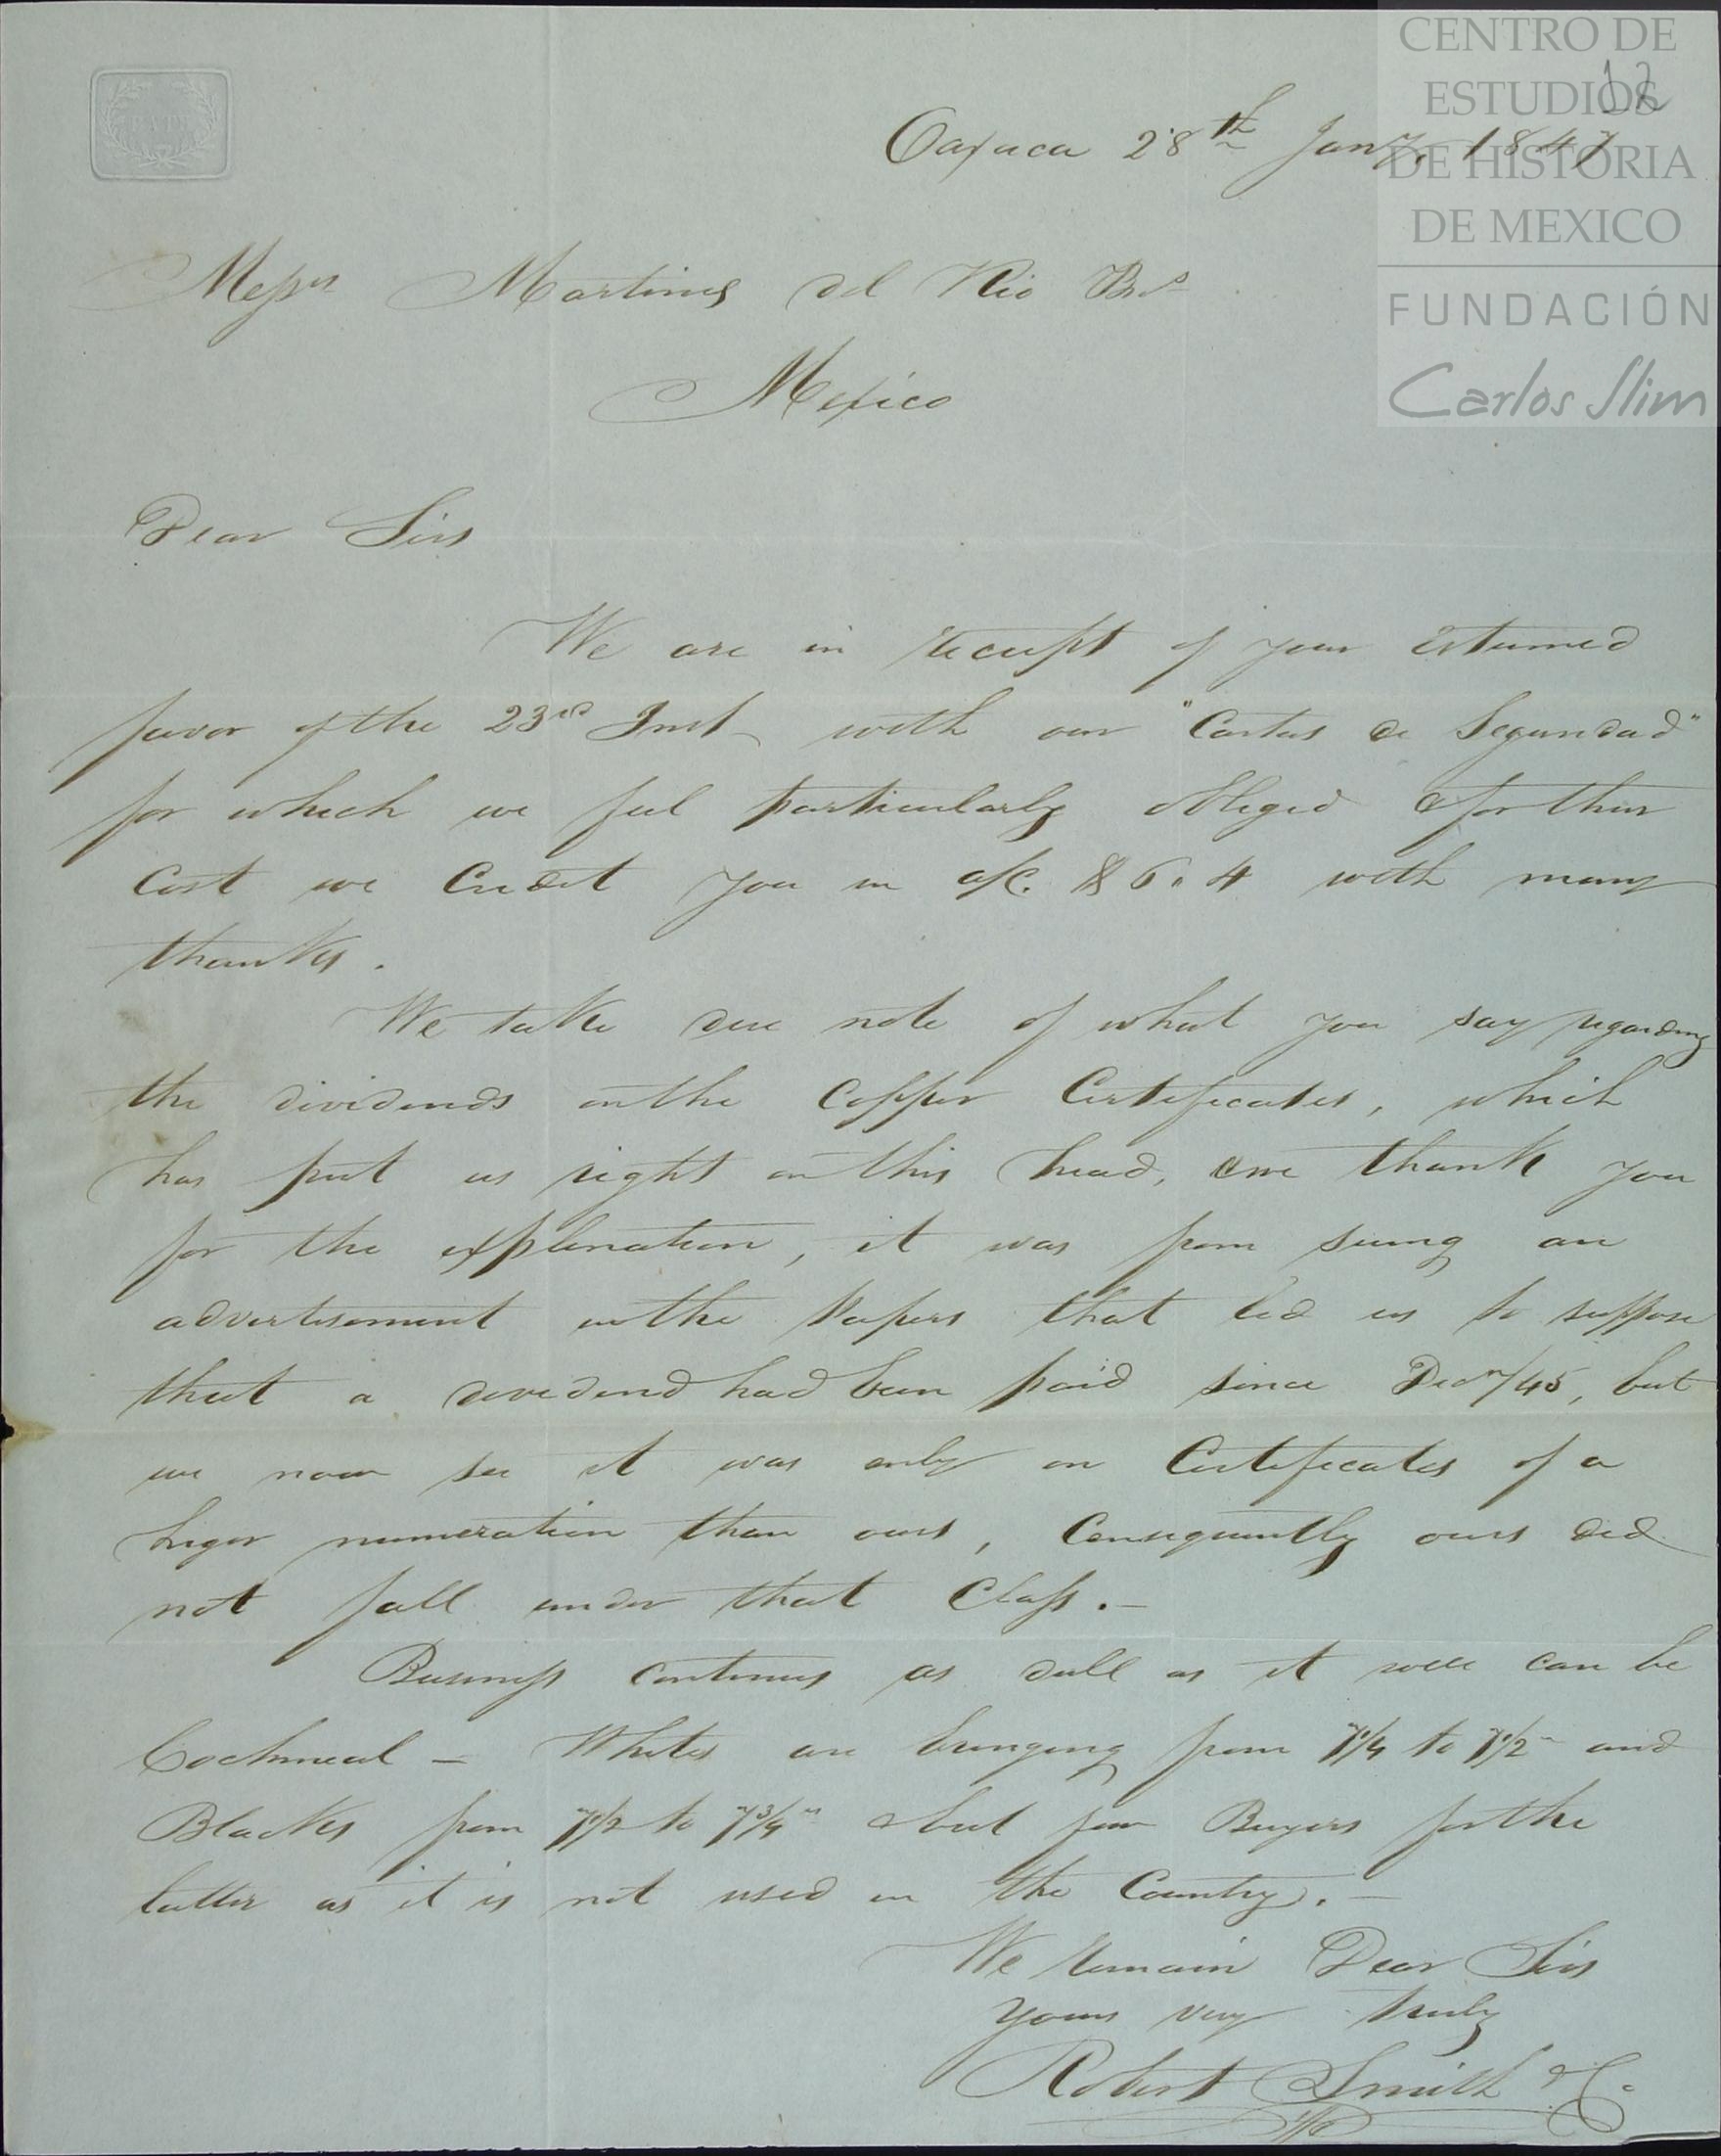 CENTRO DE
ESTUDIOS
DE HISTORIA
DE MEXICO
FUNDACIÓN
Carlos Slim
12
Oaxaca 28th Jany. 1847
Messrs Martines del Rio Bros
Mexico
Dear Sirs
We are in receipt of your esteemed
favor of the 23rd Inst with our "Cartas de Seguridad"
for which we feel particularly obliged & for their
Cost we Credit you in a/c. $6.4 with many
thanks.
We take due note of what you say regarding
the dividends on the Copper Certificates, which
has put us right on this head, & we thank you
for the explanation, it was from seeing an
advertisement in the Papers that led us to suppose
that a dividend had been paid since Decr/45, but
we now see it was only on Certificates of a
higer numeration than ours, Consequently ours did
not fall under that Class.—
Business continues as dull as it well can be
Cochineal — Whites are bringing from 7 1/4 to 7 1/2 and
Blacks from 7 1/2 to 7 3/4 & but few Buyers for the
latter as it is not used in the Country.—
We remain Dear Sirs
Yours very truly
Robert Smith & Co.